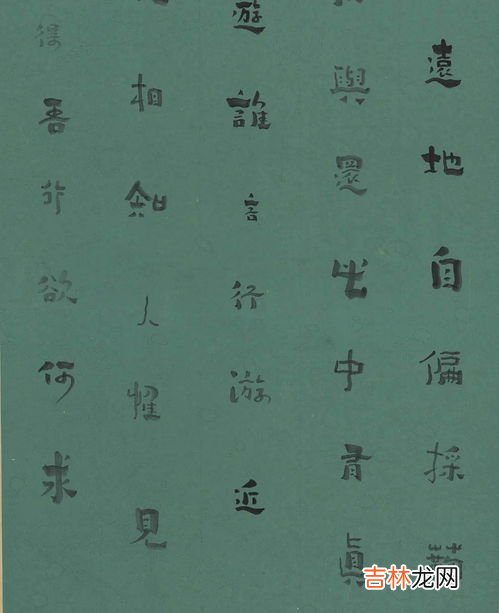 遠地自偏採菊
與還此中有眞
遊誰言行游近
相知人惟見
得吾行欲何求
吉林龙网